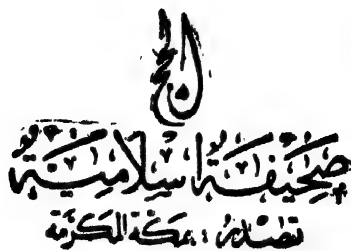 الحج
صحيفة إسلامية
تصدر بمكة المكرمة